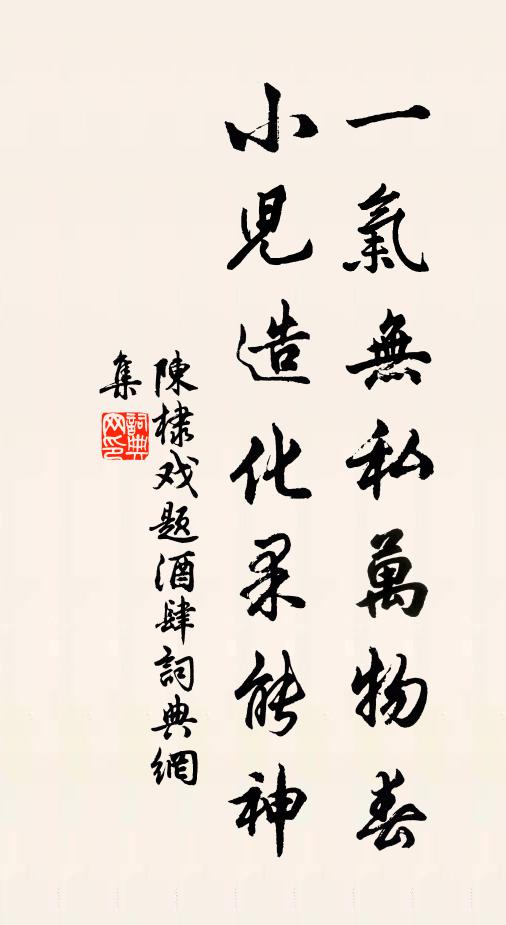 一氣無私萬物春
小兒造化果能神
陳棣戏题酒肆詞典網
集
詞典
网印